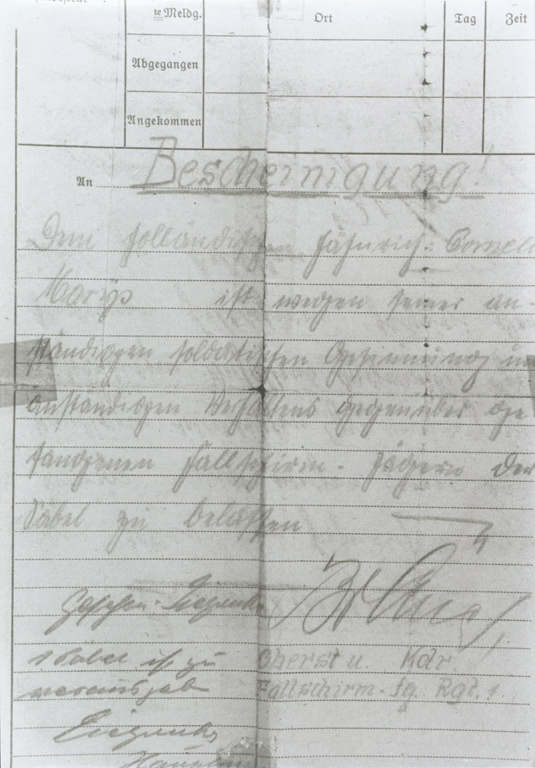 te Meldg. Ort Tag Zeit
Abgegangen
Angekommen
An Bescheinigung!
Dem holländischen Fähnrich: Corneli
ist wegen seiner an-
ständigen soldatischen Gesinnung un
anständigen Verhaltens gegenüber ge
fangenen Fallschirm-Jägern der
Säbel zu belassen
Gesehen:
1 Säbel ist zu Oberst u. Kdr
Fallschirm-Jg. Rgt. 1